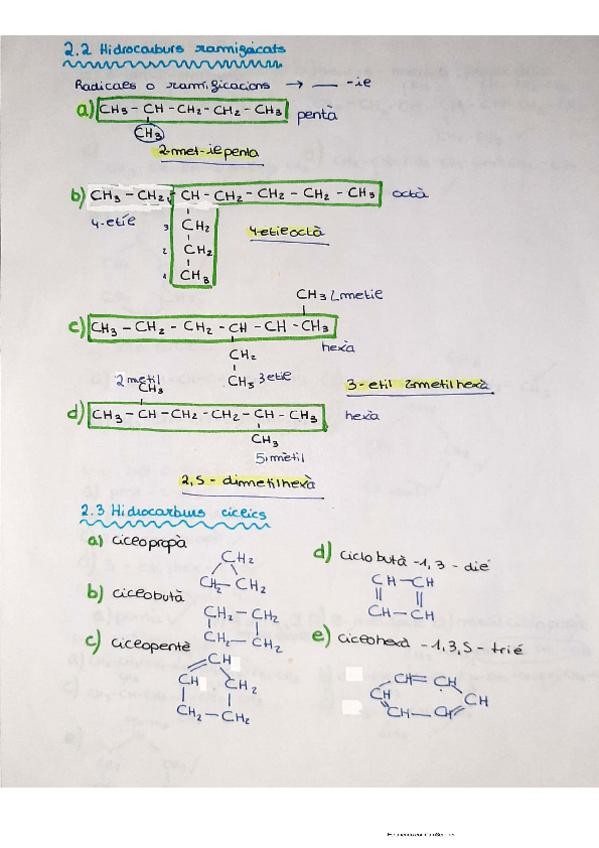 2.2 Hidrocarburs ramificats
Radicals o ramificacions → __ -il
a) CH3 - CH - CH2 - CH2 - CH3 pentà
CH3
2-met-il pentà
b) CH3 - CH2 - CH - CH2 - CH2 - CH2 - CH3 octà
4-etil 3 CH2 4-etiloctà
2 CH2
1 CH3
CH3 2metil
c) CH3 - CH2 - CH2 - CH - CH - CH3
hexà
CH2
CH3 3etil 3-etil 2metilhexà
2metil
CH3
d) CH3 - CH - CH2 - CH2 - CH - CH3 hexà
CH3
5metil
2,5 - dimetilhexà
2.3 Hidrocarburs cíclics
a) ciclopropà
CH2
CH2 - CH2
b) ciclobutà
CH2 - CH2
CH2 - CH2
c) ciclopentè
CH
CH CH2
CH2 - CH2
d) ciclobutà -1,3 - dié
CH - CH
CH - CH
e) ciclohexà -1,3,5 - trié
CH = CH
CH CH
CH - CH